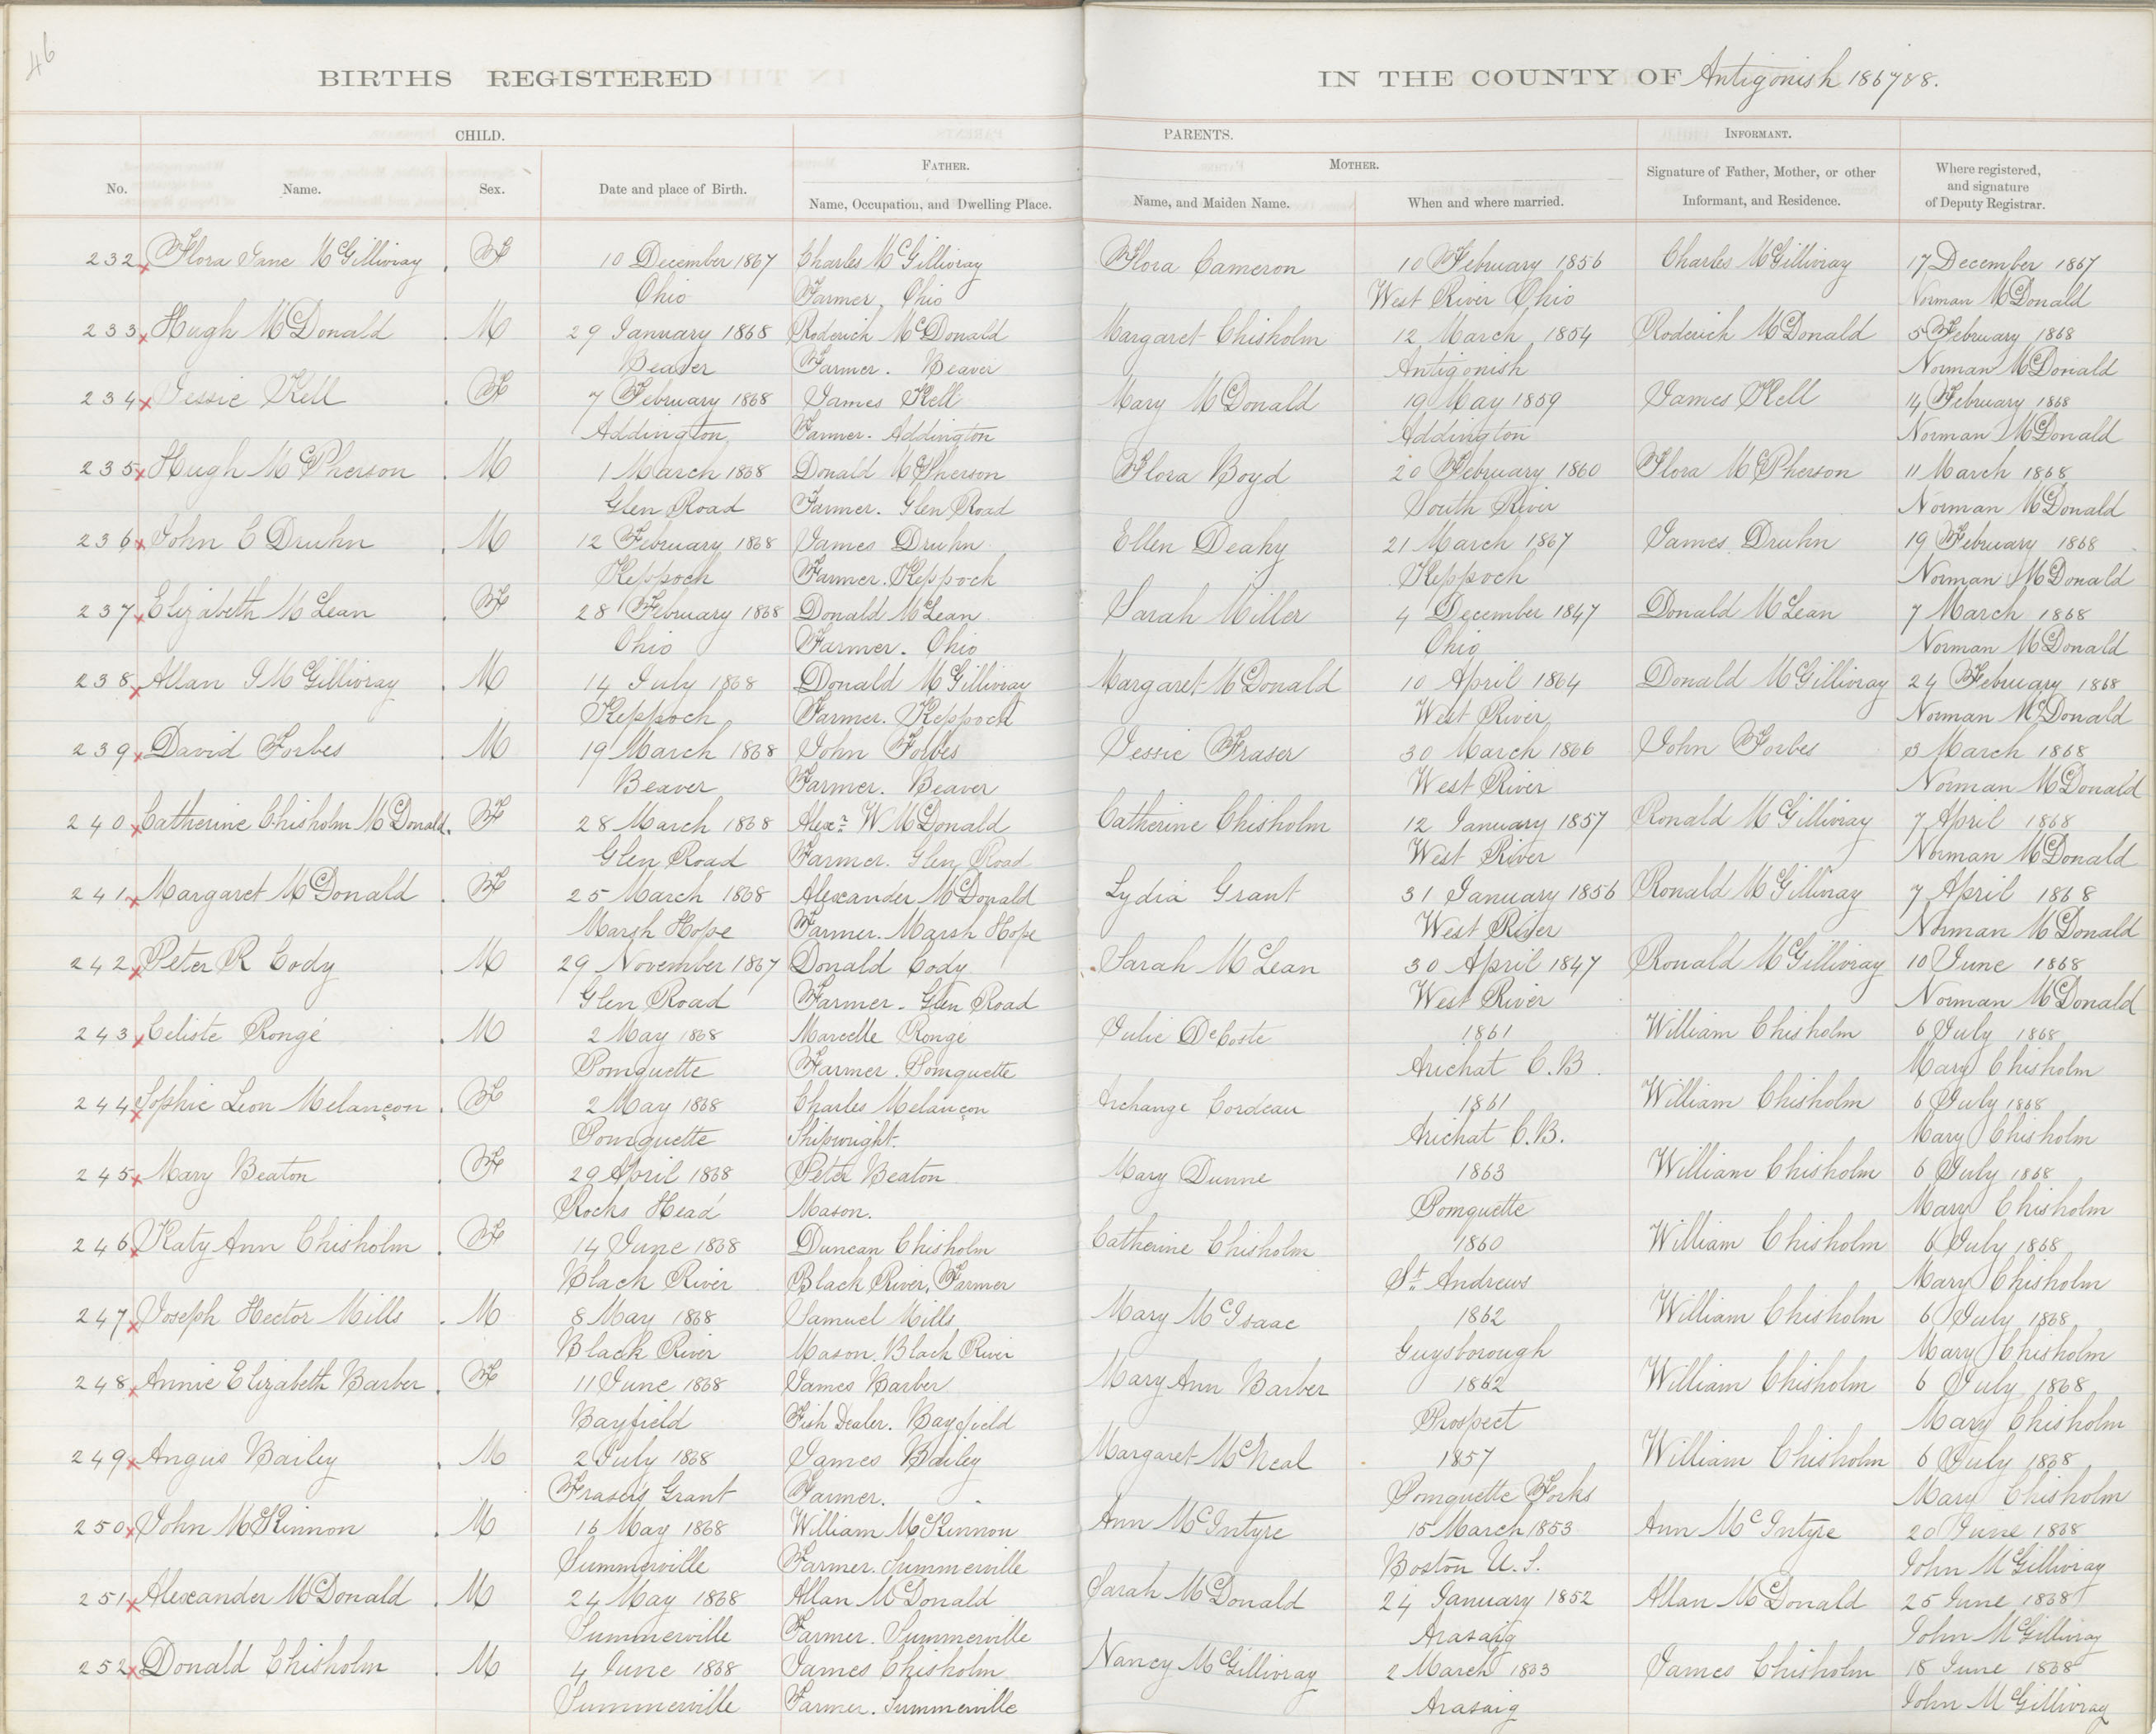 46
BIRTHS REGISTERED IN THE COUNTY OF Antigonish 1867 & 8.
CHILD. PARENTS. INFORMANT.
FATHER. MOTHER.
No. Name. Sex. Date and place of Birth. Name, Occupation, and Dwelling Place. Name, and Maiden Name. When and where married. Signature of Father, Mother, or other Informant, and Residence. Where registered, and signature of Deputy Registrar.
232 Flora Jane McGillivray . F 10 December 1867 Charles McGillivray Flora Cameron 10 February 1856 Charles McGillivray 17 December 1867
Ohio Farmer, Ohio West River Ohio Norman McDonald
233 Hugh McDonald . M 29 January 1868 Roderick McDonald Margaret Chisholm 12 March 1854 Roderick McDonald 5 February 1868
Beaver Farmer. Beaver Antigonish Norman McDonald
234 Jessie Kell . F 7 February 1868 James Kell Mary McDonald 19 May 1859 James Kell 14 February 1868
Addington Farmer. Addington Addington Norman McDonald
235 Hugh McPherson . M 1 March 1868 Donald McPherson Flora Boyd 20 February 1860 Flora McPherson 11 March 1868
Glen Road Farmer. Glen Road South River Norman McDonald
236 John C Druhn . M 12 February 1868 James Druhn Ellen Deahy 21 March 1867 James Druhn 19 February 1868
Keppoch Farmer. Keppoch Keppoch Norman McDonald
237 Elizabeth McLean . F 28 February 1868 Donald McLean Sarah Miller 4 December 1847 Donald McLean 7 March 1868
Ohio Farmer. Ohio Ohio Norman McDonald
238 Allan J McGillivray . M 14 July 1868 Donald McGillivray Margaret McDonald 10 April 1864 Donald McGillivray 24 February 1868
Keppoch Farmer. Keppoch West River Norman McDonald
239 David Forbes . M 19 March 1868 John Forbes Jessie Fraser 30 March 1866 John Forbes 3 March 1868
Beaver Farmer. Beaver West River Norman McDonald
240 Catherine Chisholm McDonald. F 28 March 1868 Alexr W McDonald Catherine Chisholm 12 January 1857 Ronald McGillivray 7 April 1868
Glen Road Farmer. Glen Road West River Norman McDonald
241 Margaret McDonald . F 25 March 1868 Alexander McDonald Lydia Grant 31 January 1856 Ronald McGillivray 7 April 1868
Marsh Hope Farmer. Marsh Hope West River Norman McDonald
242 Peter R Cody . M 29 November 1867 Donald Cody Sarah McLean 30 April 1847 Ronald McGillivray 10 June 1868
Glen Road Farmer. Glen Road West River Norman McDonald
243 Celiste Rongé . M 2 May 1868 Marcelle Rongé Julie DeCoste 1861 William Chisholm 6 July 1868
Pomquette Farmer. Pomquette Arichat C.B. Mary Chisholm
244 Sophie Leon Melançon . F 2 May 1868 Charles Melançon Archange Cordeau 1861 William Chisholm 6 July 1868
Pomquette Shipwright. Arichat C.B. Mary Chisholm
245 Mary Beaton . F 29 April 1868 Peter Beaton Mary Dunne 1863 William Chisholm 6 July 1868
Rocks Head Mason. Pomquette Mary Chisholm
246 Katy Ann Chisholm . F 14 June 1868 Duncan Chisholm Catherine Chisholm 1860 William Chisholm 6 July 1868
Black River Black River, Farmer St. Andrews Mary Chisholm
247 Joseph Hector Mills . M 8 May 1868 Samuel Mills Mary McIsaac 1862 William Chisholm 6 July 1868
Black River Mason. Black River Guysborough Mary Chisholm
248 Annie Elizabeth Barber . F 11 June 1868 James Barber Mary Ann Barber 1862 William Chisholm 6 July 1868
Bayfield Fish Dealer. Bayfield Prospect Mary Chisholm
249 Angus Bailey . M 2 July 1868 James Bailey Margaret McNeal 1857 William Chisholm 6 July 1868
Frasers Grant Farmer. Pomquette Forks Mary Chisholm
250 John McKinnon . M 16 May 1868 William McKinnon Ann McIntyre 15 March 1853 Ann McIntyre 20 June 1868
Summerville Farmer. Summerville Boston U.S. John McGillivray
251 Alexander McDonald . M 24 May 1868 Allan McDonald Sarah McDonald 24 January 1852 Allan McDonald 25 June 1868
Summerville Farmer. Summerville Arasaig John McGillivray
252 Donald Chisholm . M 4 June 1868 James Chisholm Nancy McGillivray 2 March 1863 James Chisholm 18 June 1868
Summerville Farmer. Summerville Arasaig John McGillivray